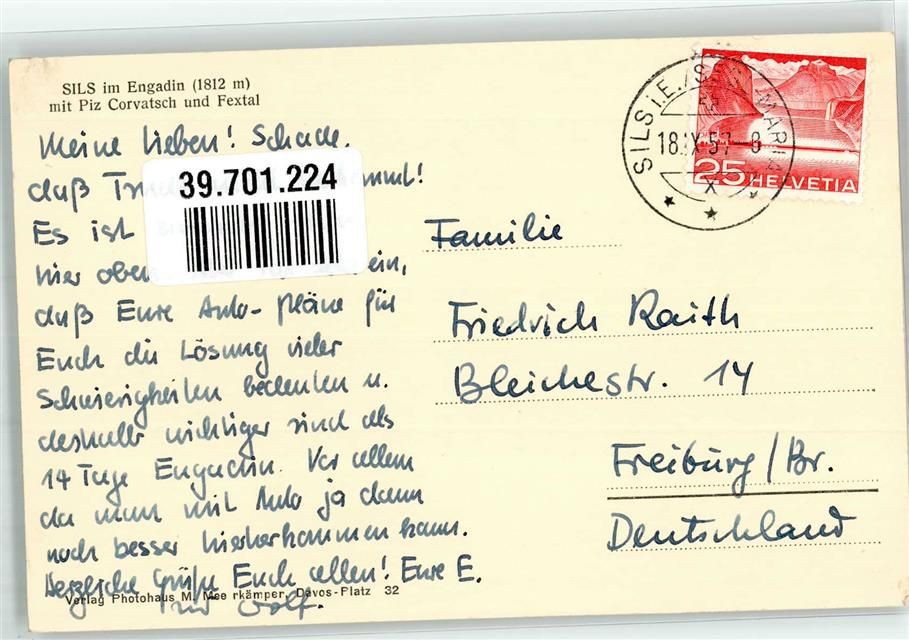 SILS im Engadin (1812 m)
mit Piz Corvatsch und Fextal
Meine Lieben! Schade,
daß
39.701.224
Es ist
hier oben ein,
daß Eure Auto-Pläne für
Euch die Lösung vieler
Schwierigkeiten bedeuten u.
deshalb wichtiger sind als
14 Tage Engadin. Vor allem
da man mit Auto ja dann
noch besser hierherkommen kann.
Herzliche Grüße Euch allen! Eure E.
und Wolf.
Verlag Photohaus M. Mee rkämper, Davos-Platz 32
SILS i.E./SEGL MARIA
18.IX.57-8
X
25 HELVETIA
Familie
Friedrich Raith
Bleichestr. 14
Freiburg/Br.
Deutschland